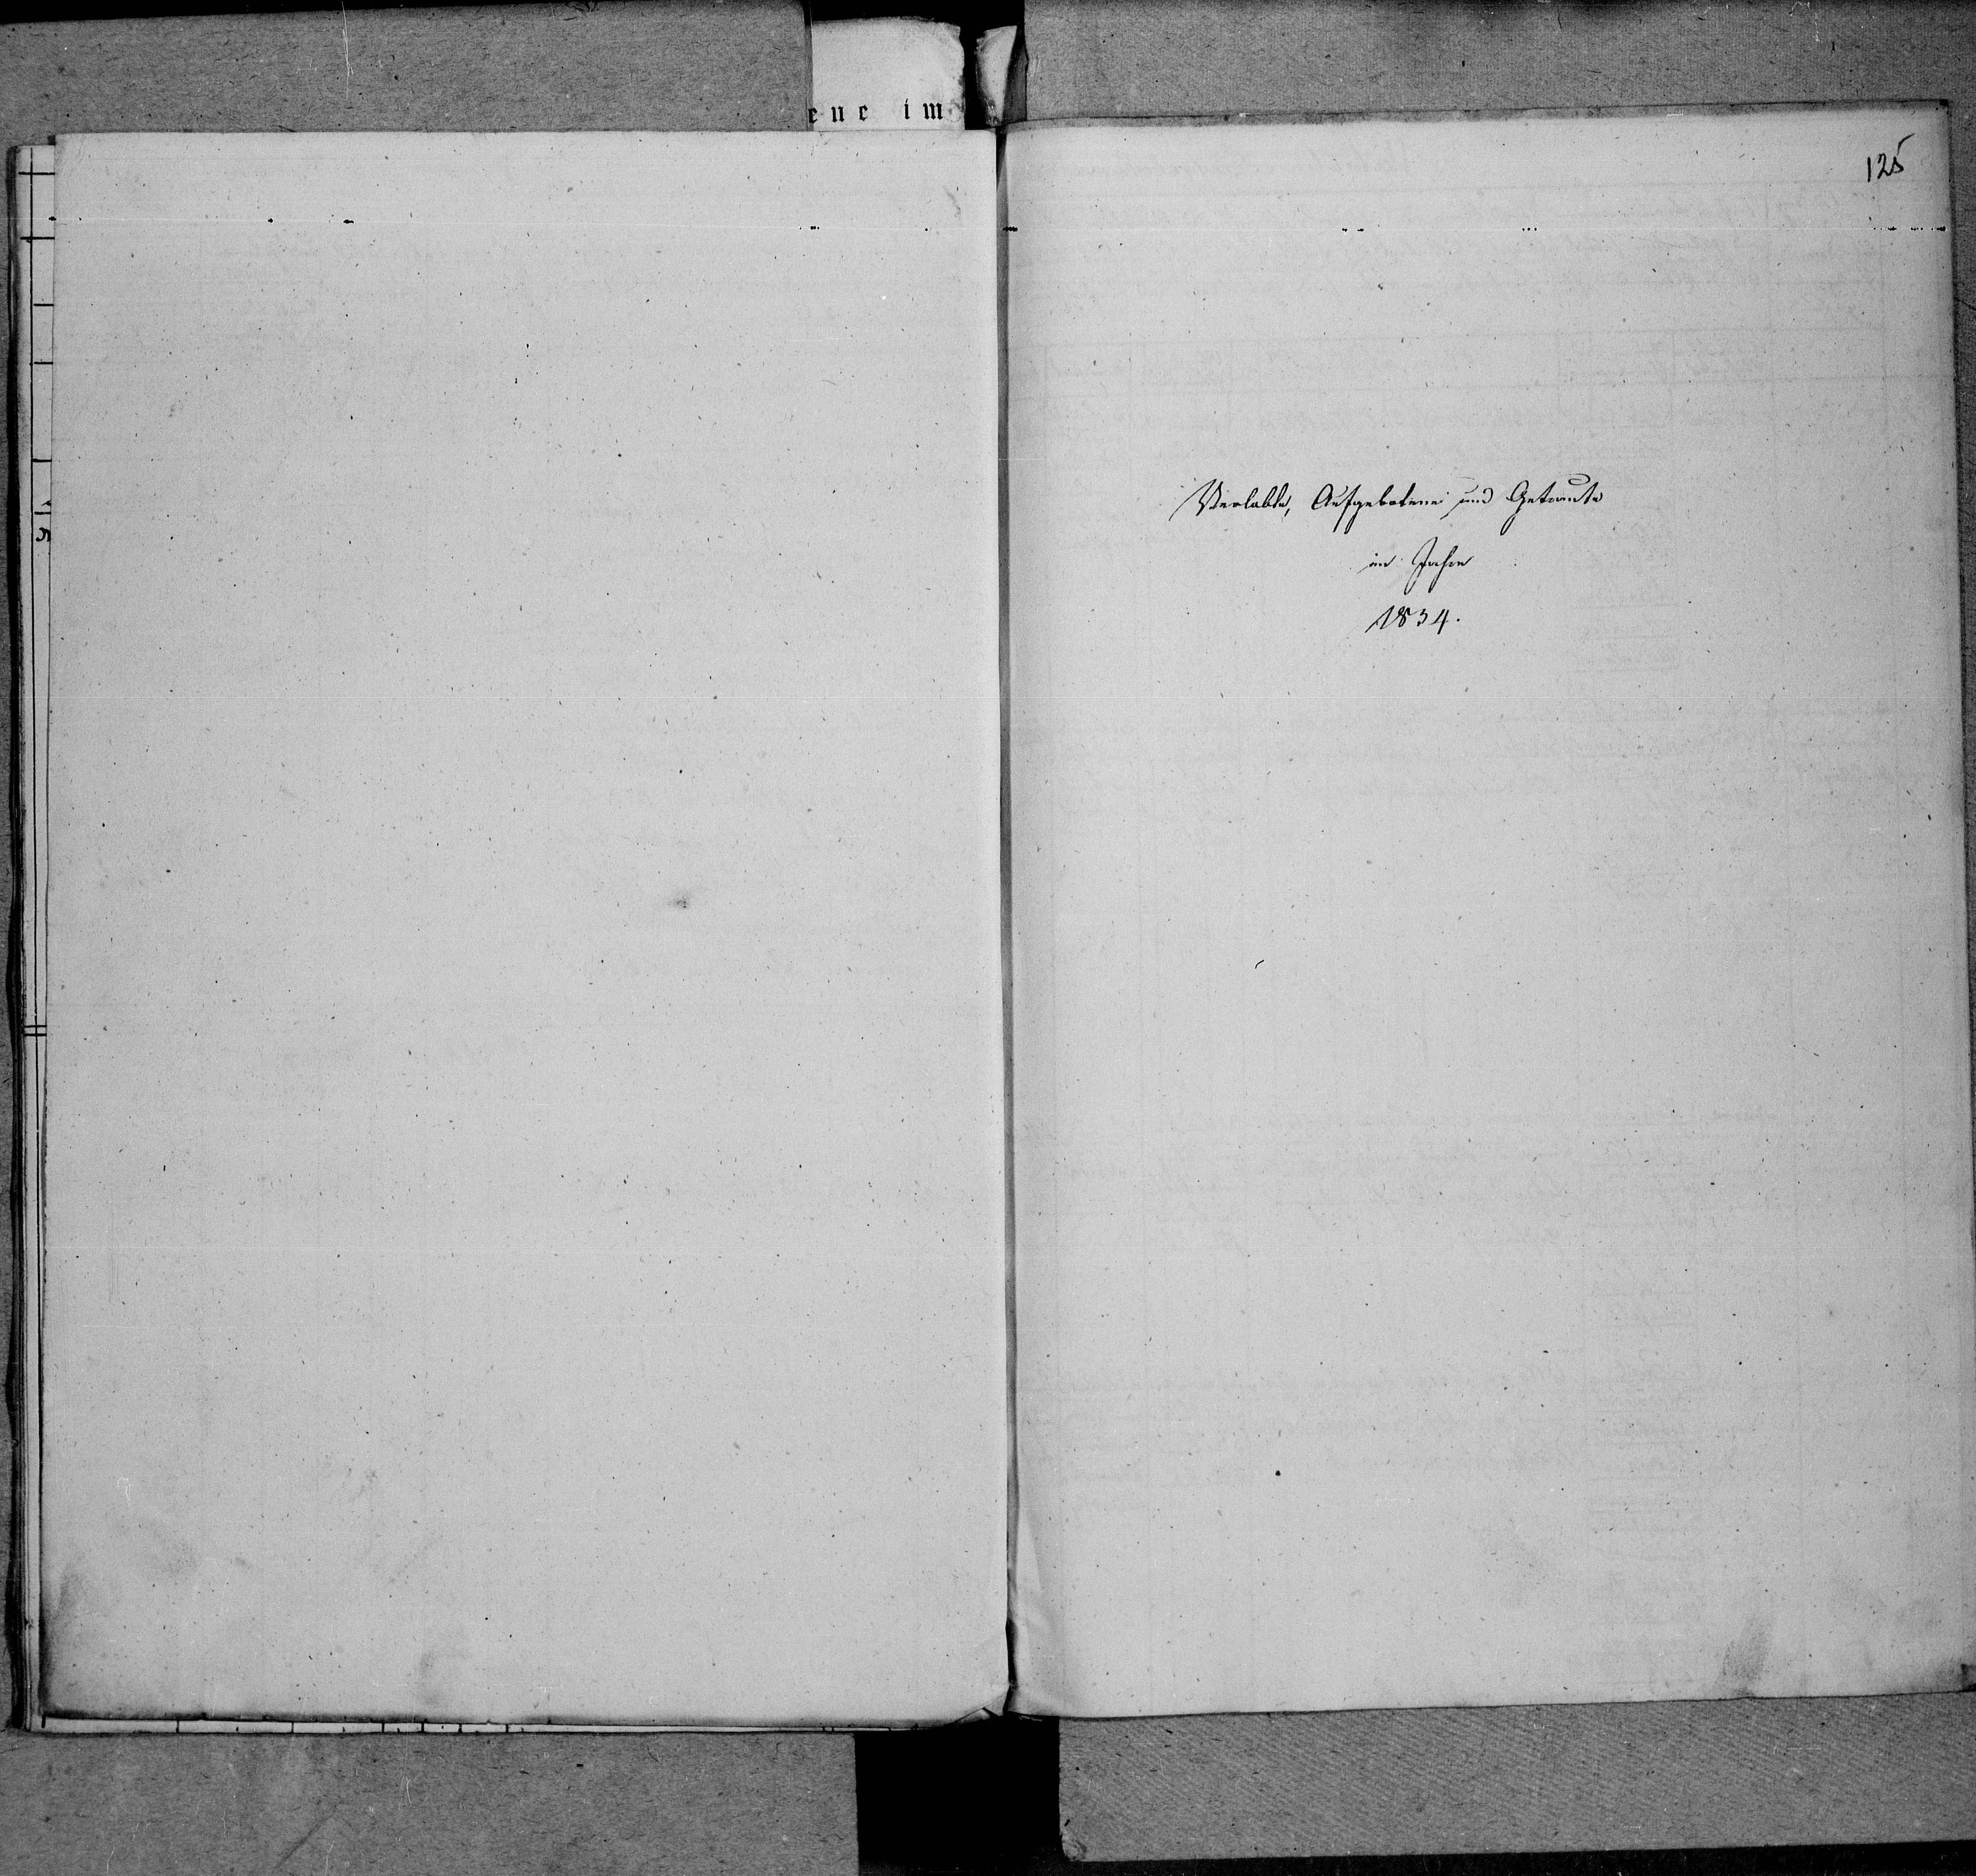 ene im
125
Verlobte, Aufgebotene und Getraute
im Jahre
1834.